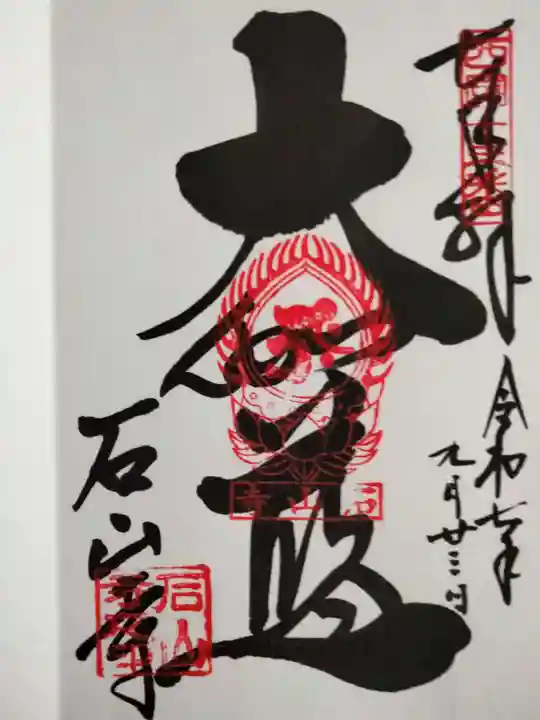 奉拝
令和七年
九月廿三日
西国十三番
大伽藍
石山寺
石山寺
石山寺